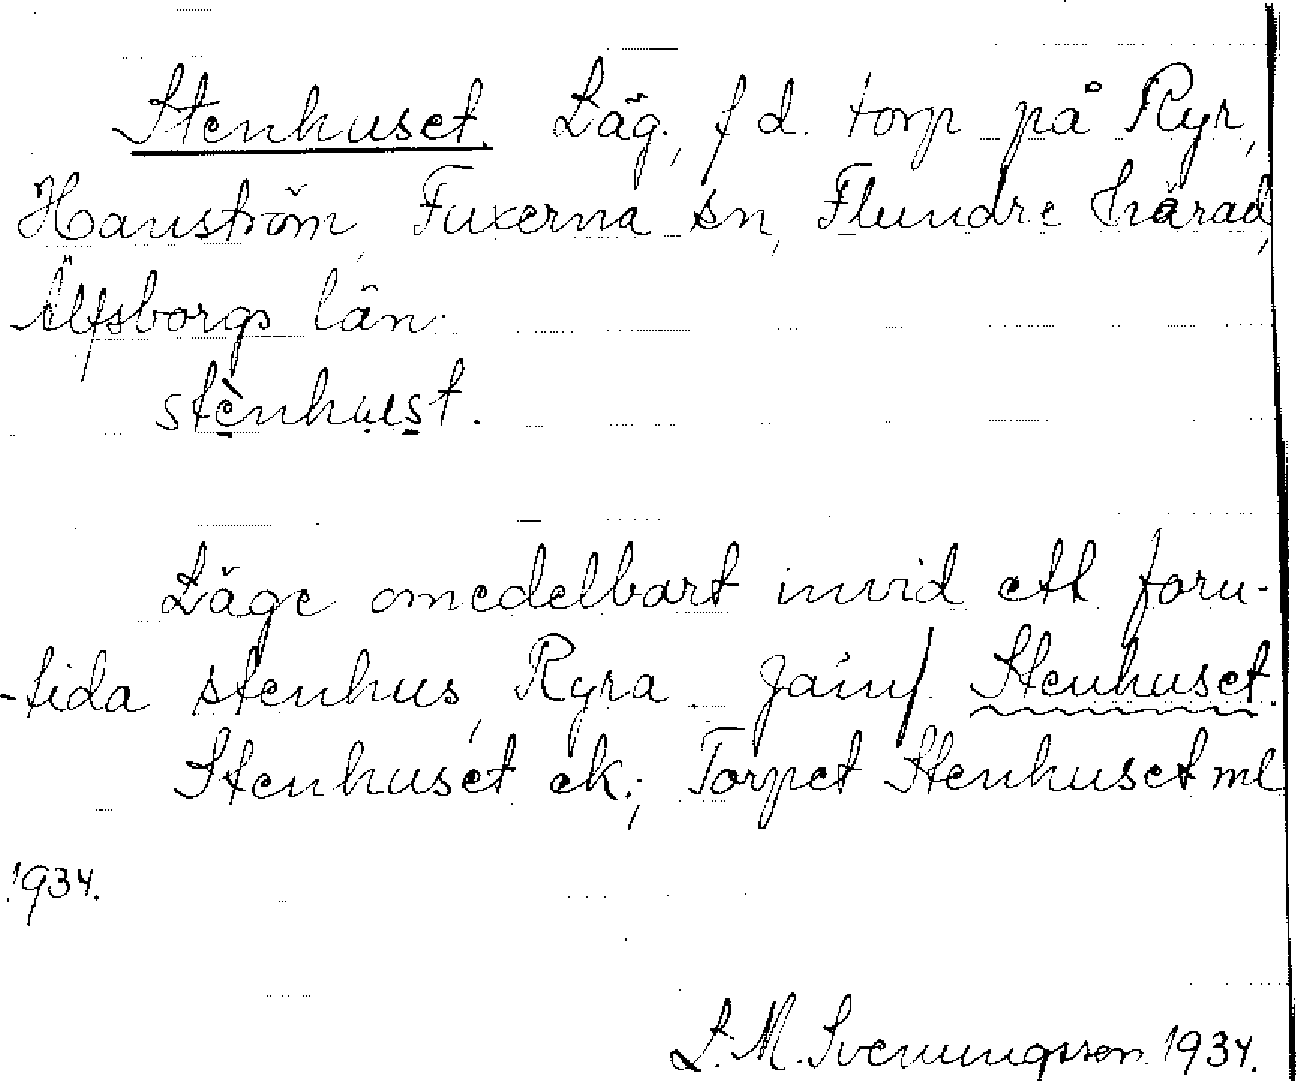 Stenhuset. Läg., f d. torp på Ryr,
Hanström, Fuxerna sn, Flundre härad,
Älfsborgs län.
stènhust.
Läge omedelbart invid ett forn-
-tida stenhus, Ryra. Jämf. Stenhuset.
Stenhuset ek.; Torpet Stenhuset ml
1934.
L. M. Svenungsson 1934.